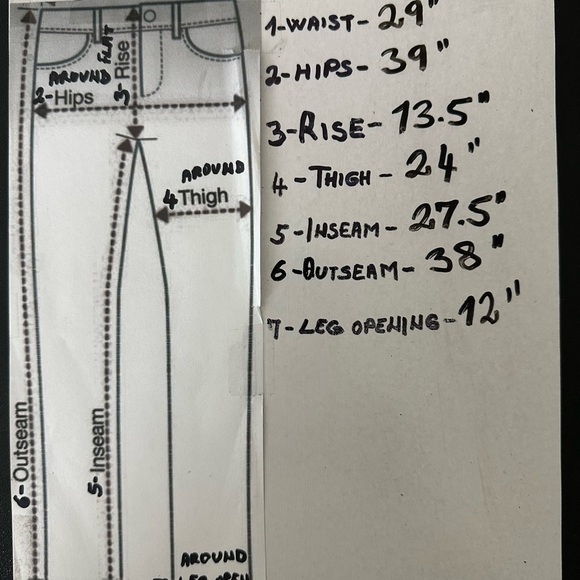 1-WAIST- 29"
2-HIPS- 39"
3-RISE- 13.5"
4-THIGH- 24"
5-INSEAM- 27.5"
6-OUTSEAM- 38"
7-LEG OPENING- 12"
FLAT
3-Rise
AROUND
2-Hips
AROUND
4 Thigh
6-Outseam
5-Inseam
AROUND
LEG OPEN